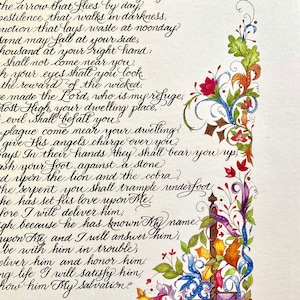 the arrow that flies by day,
pestilence that walks in darkness,
uction that lays waste at noonday
sand may fall at your side,
thousand at your right hand;
shall not come near you
h your eyes shall you look
the reward of the wicked
e made the Lord, who is my refuge,
Most High, your dwelling place,
evil shall befall you,
plague come near your dwelling;
give His angels charge over you,
ways In their hands they shall bear you up,
ash your foot against a stone
d upon the lion and the cobra,
the serpent you shall trample underfoot
he has set his love upon Me,
fore I will deliver him;
igh because he has known My name
upon Me and I will answer him;
be with him in trouble;
eliver him and honor him
ng life I will satisfy him
how him My salvation.